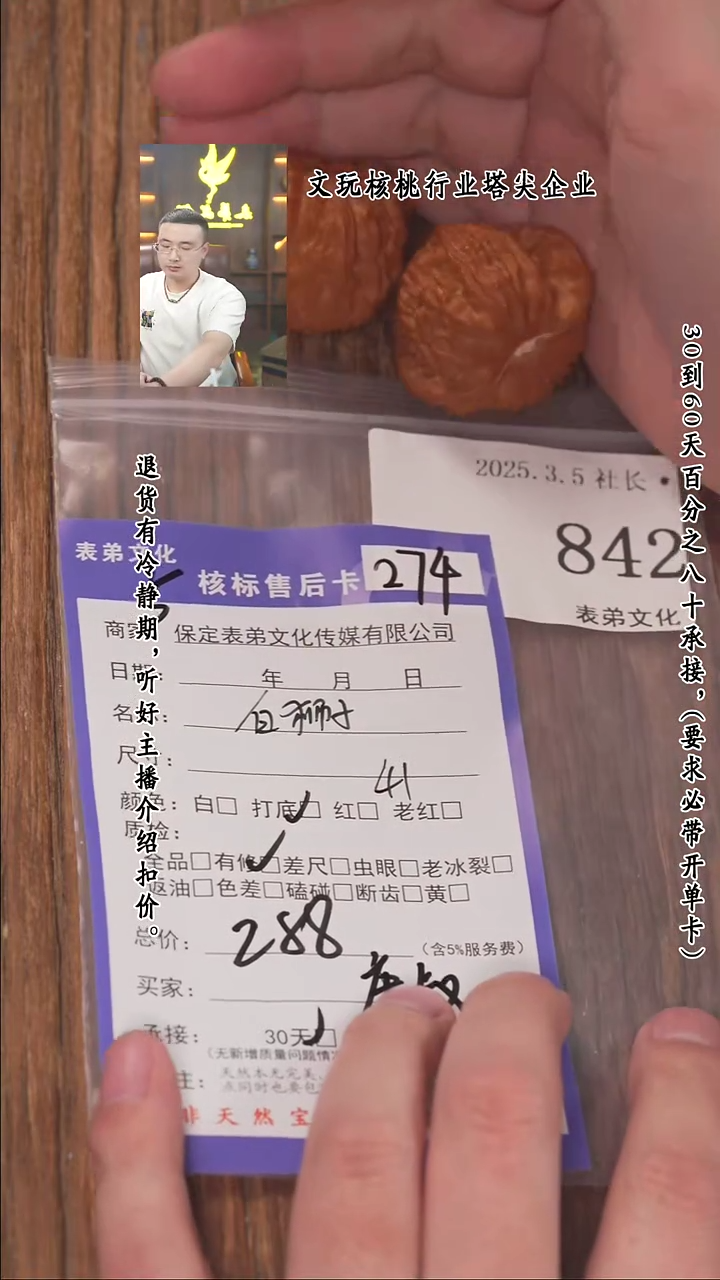 文玩核桃行业塔尖企业
30到60天百分之八十承接，（要求必带开单卡）
退货有冷静期，听好主播介绍扣价。
2025.3.5 社长
842
表弟文化
表弟文化
核标售后卡 274
商家 保定表弟文化传媒有限公司
日期: 年 月 日
名 : 白狮子
尺寸: 41
颜色: 白□ 打底□ 红□ 老红□
质检:
全品□有修□差尺□虫眼□老冰裂□
返油□色差□磕碰□断齿□黄□
总价: 288 （含5%服务费）
买家:
承接: 30天□
（无新增质量问题情
主: 天然本无完美
点同时也要包
非天然宝